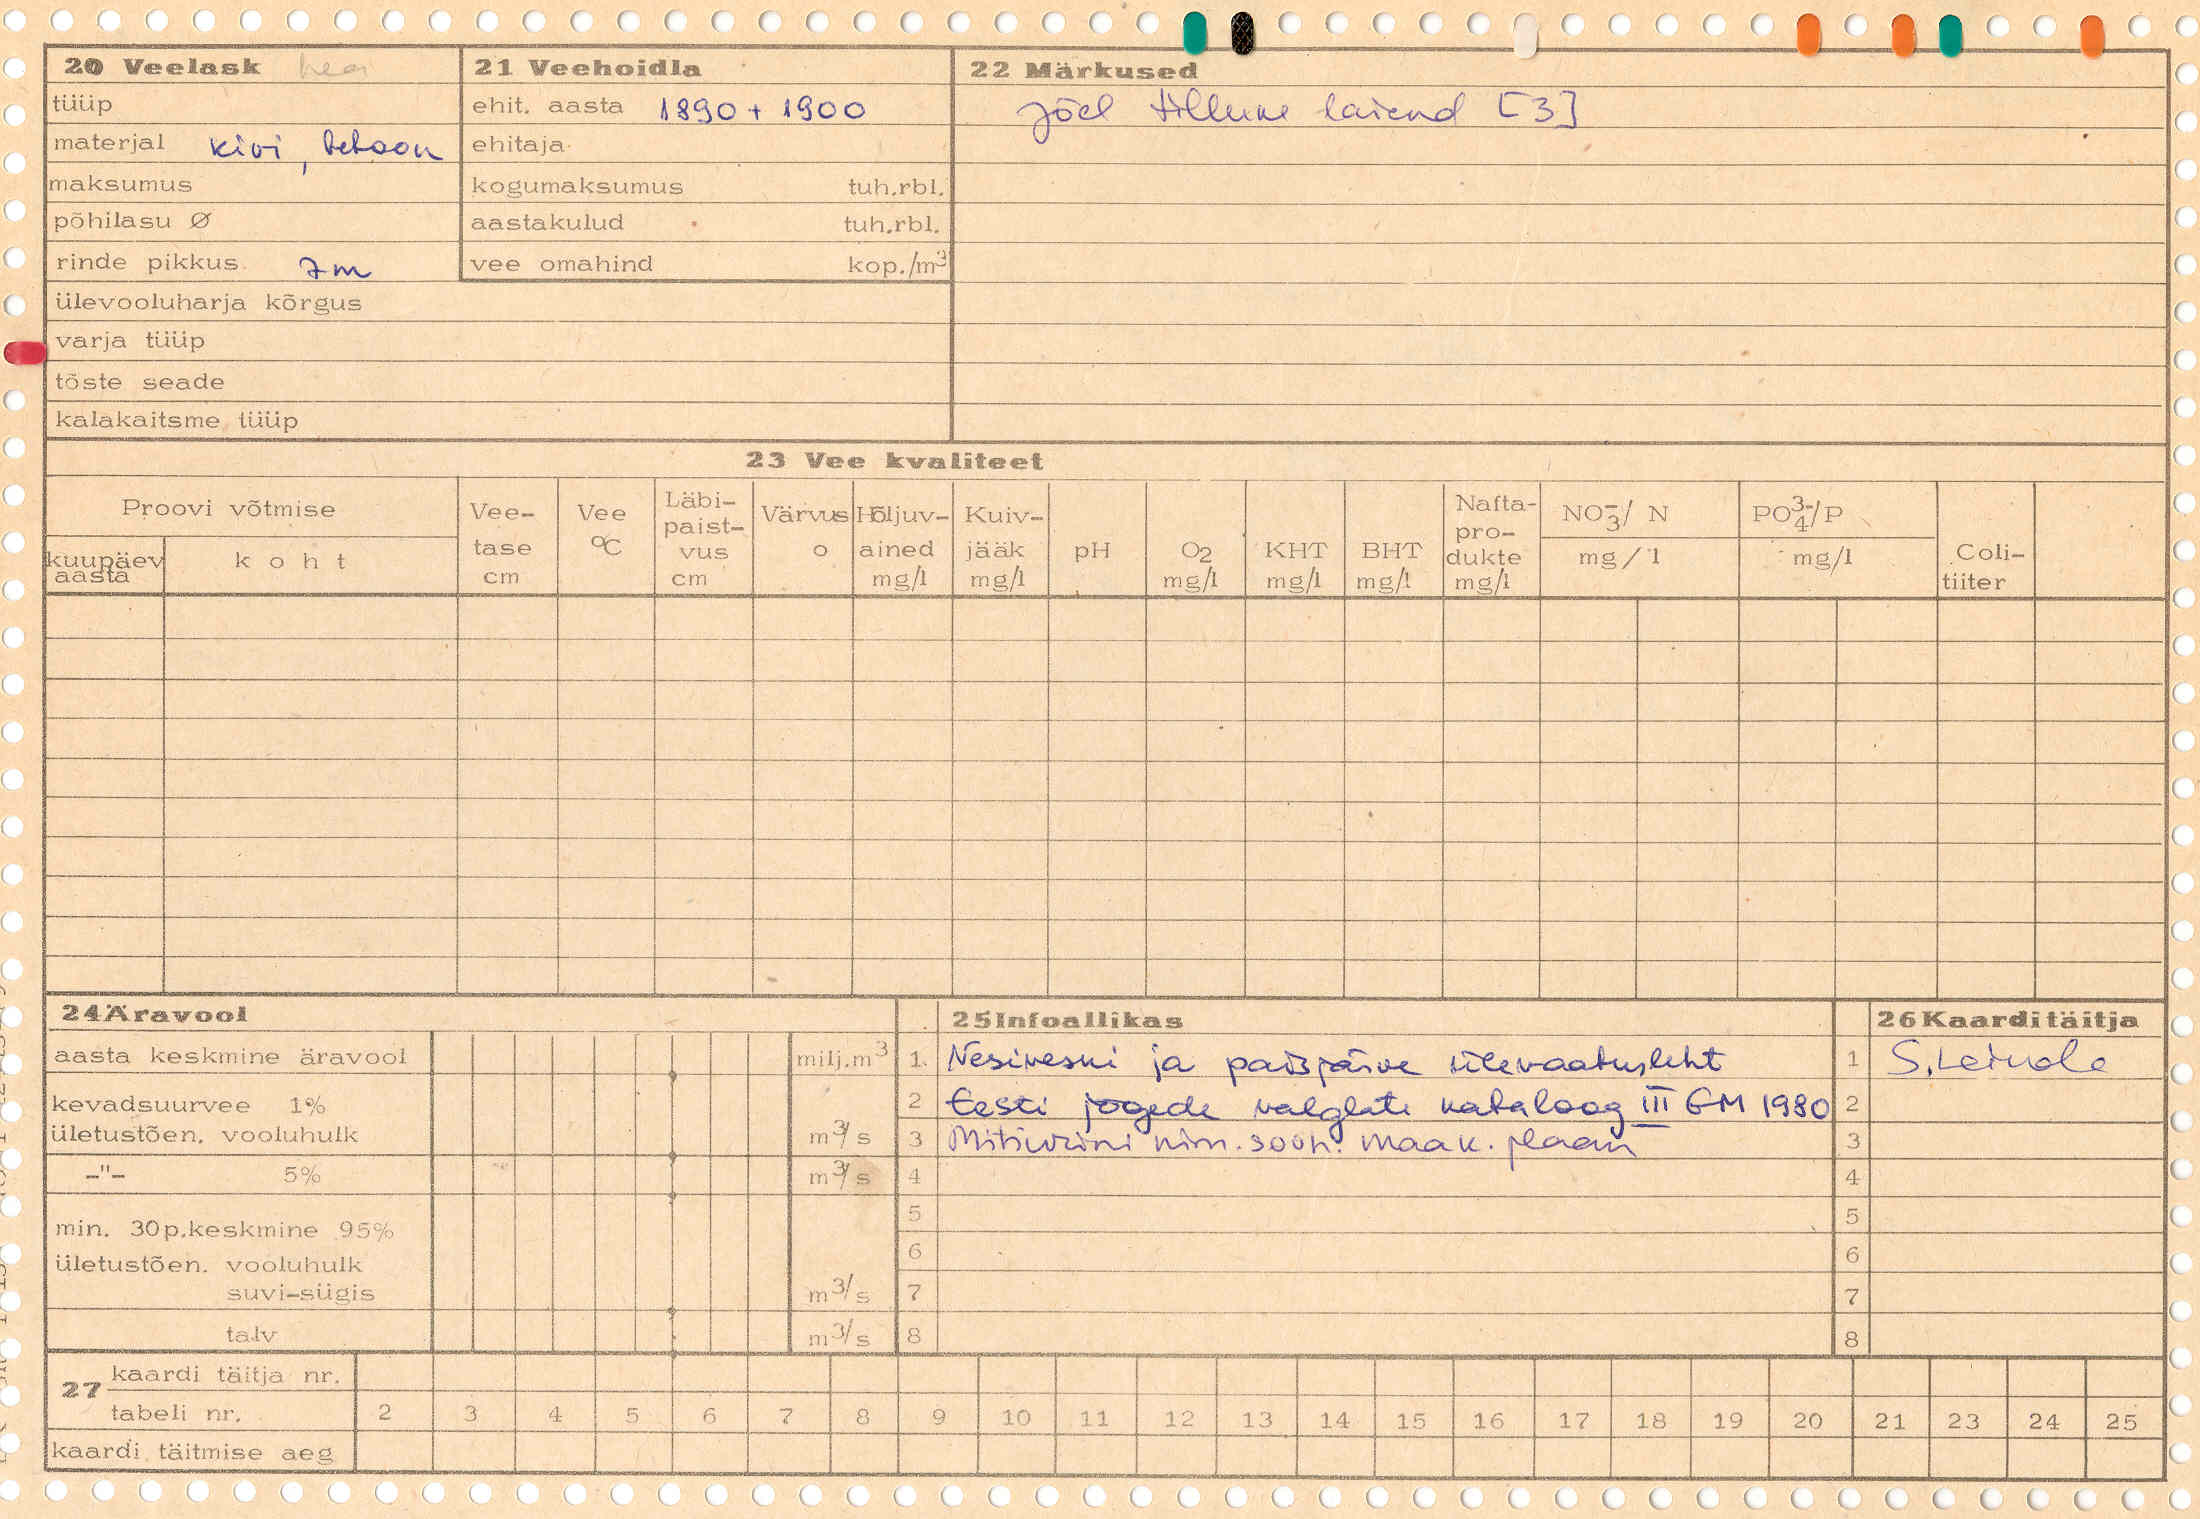 20 Veelask hea
tüüp
materjal kivi, betoon
maksumus
põhilasu Ø
rinde pikkus 7m
ülevooluharja kõrgus
varja tüüp
tõste seade
kalakaitsme tüüp
21 Veehoidla
ehit. aasta 1890 + 1900
ehitaja
kogumaksumus tuh.rbl.
aastakulud tuh.rbl.
vee omahind kop./m³
22 Märkused
Jõel tillune laiend [3]
23 Vee kvaliteet
Proovi võtmise
kuupäev
aasta
koht
Vee-
tase
cm
Vee
°C
Läbi-
paist-
vus
cm
Värvus
o
Hõljuv-
ained
mg/l
Kuiv-
jääk
mg/l
pH
O₂
mg/l
KHT
mg/l
BHT
mg/l
Nafta-
pro-
dukte
mg/l
NO₃⁻/ N
mg/l
PO₄³⁻/P
mg/l
Coli-
tiiter
24 Äravool
aasta keskmine äravool milj.m³
kevadsuurvee 1%
ületustõen. vooluhulk m³/s
-"- 5% m³/s
min. 30p.keskmine 95%
ületustõen. vooluhulk
suvi-sügis m³/s
talv m³/s
25 Infoallikas
1. Vesiveski ja paisjärve ülevaatusleht
2 Eesti jõgede valglate kataloog III EM 1980
3 Mitšurini nim. sovh. maak. plaan
4
5
6
7
8
26 Kaarditäitja
1 S. Leinola
2
3
4
5
6
7
8
27 kaardi täitja nr.
tabeli nr. 2 3 4 5 6 7 8 9 10 11 12 13 14 15 16 17 18 19 20 21 23 24 25
kaardi täitmise aeg